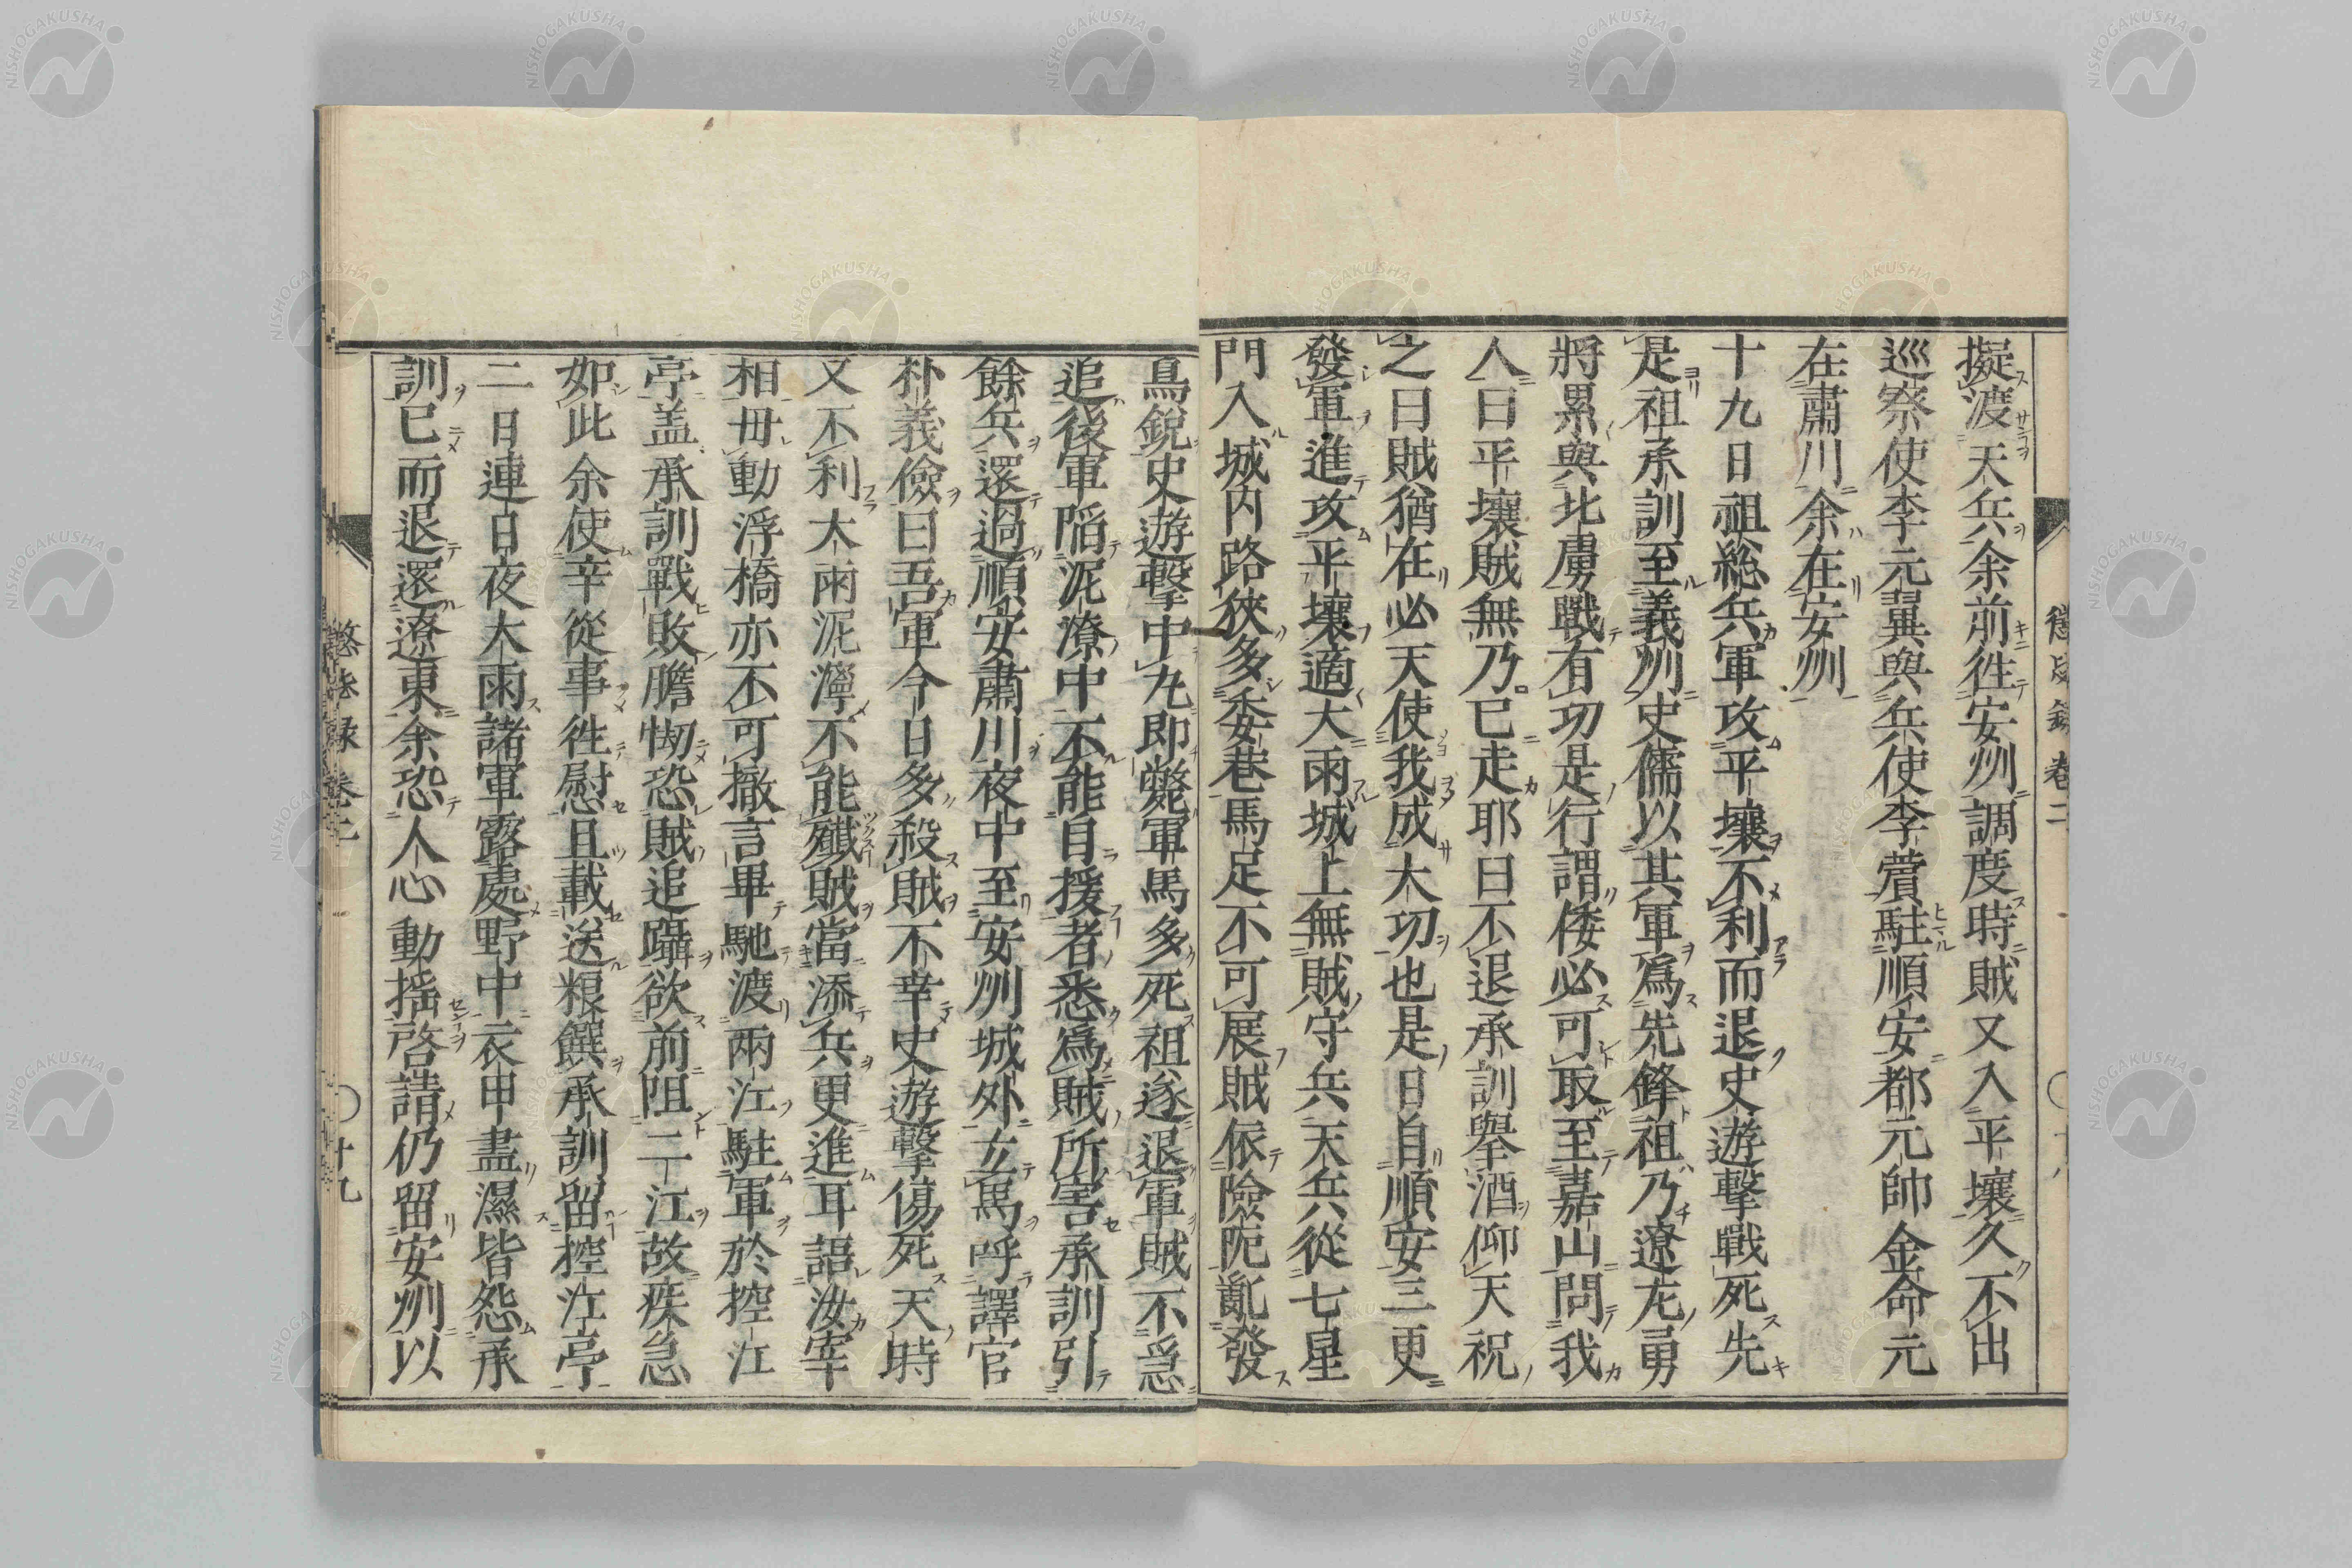 擬渡天兵余前徃安州調度時賊又入平壤久不出
巡察使李元翼與兵使李薲駐順安都元帥金命元
在肅川余在安州
十九日祖總兵軍攻平壤不利而退史遊擊戰死先
是祖承訓至義州史儒以其軍爲先鋒祖乃遼左勇
將累與北虜戰有功是行謂倭必可取至嘉山問我
人曰平壤賊無乃已走耶曰不退承訓舉酒仰天祝
之曰賊猶在必天使我成大功也是日自順安三更
發軍進攻平壤適大雨城上無賊守兵天兵從七星
門入城内路狹多委巷馬足不可展賊依險阨亂發
鳥銳史遊擊中丸即斃軍馬多死祖遂退軍賊不急
追後軍陷泥潦中不能自援者悉爲賊所害承訓引
餘兵還過順安肅川夜中至安州城外立馬呼譯官
朴義儉曰吾軍今日多殺賊不幸史遊擊傷死天時
又不利大雨泥濘不能殲賊當添兵更進耳語汝宰
相毋動浮橋亦不可撤言畢馳渡兩江駐軍於控江
亭盖承訓戰敗膽㤼恐賊追躡欲前阻二江故疾急
如此余使辛從事徃慰且載送粮饌承訓留控江亭
二日連日夜大雨諸軍露處野中衣甲盡濕皆怨承
訓已而退還遼東余恐人心動揺啓請仍留安州以
懲毖録 卷二 〇 十九